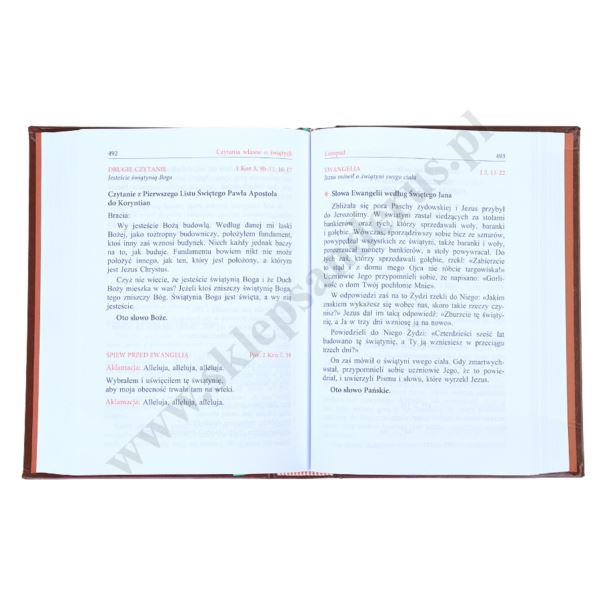 492 Czytania własne o świętych
DRUGIE CZYTANIE 1 Kor 3, 9b-11. 16-17
Jesteście świątynią Boga
Czytanie z Pierwszego Listu Świętego Pawła Apostoła
do Koryntian
Bracia:
Wy jesteście Bożą budowlą. Według danej mi łaski
Bożej, jako roztropny budowniczy, położyłem fundament,
ktoś inny zaś wznosi budynek. Niech każdy jednak baczy
na to, jak buduje. Fundamentu bowiem nikt nie może
położyć innego, jak ten, który jest położony, a którym
jest Jezus Chrystus.
Czyż nie wiecie, że jesteście świątynią Boga i że Duch
Boży mieszka w was? Jeżeli ktoś zniszczy świątynię Boga,
tego zniszczy Bóg. Świątynia Boga jest święta, a wy nią
jesteście.
Oto słowo Boże.
ŚPIEW PRZED EWANGELIĄ Por. 2 Krn 7, 16
Aklamacja: Alleluja, alleluja, alleluja.
Wybrałem i uświęciłem tę świątynię,
aby moja obecność trwała tam na wieki.
Aklamacja: Alleluja, alleluja, alleluja.
Listopad 493
EWANGELIA J 2, 13-22
Jezus mówił o świątyni swego ciała
Słowa Ewangelii według Świętego Jana
Zbliżała się pora Paschy żydowskiej i Jezus przybył
do Jerozolimy. W świątyni zastał siedzących za stołami
bankierów oraz tych, którzy sprzedawali woły, baranki
i gołębie. Wówczas, sporządziwszy sobie bicz ze sznurów,
powypędzał wszystkich ze świątyni, także baranki i woły,
porozrzucał monety bankierów, a stoły powywracał. Do
tych zaś, którzy sprzedawali gołębie, rzekł: «Zabierzcie
to stąd i z domu mego Ojca nie róbcie targowiska!»
Uczniowie Jego przypomnieli sobie, że napisano: «Gorli-
wość o dom Twój pochłonie Mnie».
W odpowiedzi zaś na to Żydzi rzekli do Niego: «Jakim
znakiem wykażesz się wobec nas, skoro takie rzeczy czy-
nisz?» Jezus dał im taką odpowiedź: «Zburzcie tę świąty-
nię, a Ja w trzy dni wzniosę ją na nowo».
Powiedzieli do Niego Żydzi: «Czterdzieści sześć lat
budowano tę świątynię, a Ty ją wzniesiesz w przeciągu
trzech dni?»
On zaś mówił o świątyni swego ciała. Gdy zmartwych-
wstał, przypomnieli sobie uczniowie Jego, że to powie-
dział, i uwierzyli Pismu i słowu, które wyrzekł Jezus.
Oto słowo Pańskie.